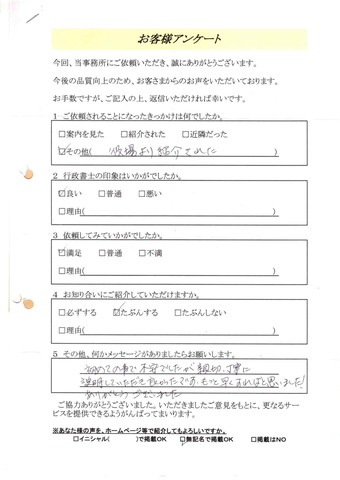 お客様アンケート
今回、当事務所にご依頼いただき、誠にありがとうございます。
今後の品質向上のため、お客さまからのお声をいただいております。
お手数ですが、ご記入の上、返信いただければ幸いです。
1 ご依頼されることになったきっかけは何でしたか。
□案内を見た □紹介された □近隣だった
☑その他( 役場より紹介された )
2 行政書士の印象はいかがでしたか。
☑良い □普通 □悪い
□理由( )
3 依頼してみていかがでしたか。
☑満足 □普通 □不満
□理由( )
4 お知り合いにご紹介していただけますか。
□必ずする ☑たぶんする □たぶんしない
□理由( )
5 その他、何かメッセージがありましたらお願いします。
初めての事で不安でしたが親切、丁寧に
説明していただき良かったです。もっと早くすればと思いました!
ありがとうございました
ご協力ありがとうございました。いただきましたご意見をもとに、更なるサー
ビスを提供できるようがんばってまいります。
※あなた様の声を、ホームページ等で紹介してもよろしいですか。
□イニシャル( )で掲載OK ☑無記名で掲載OK □掲載はNO